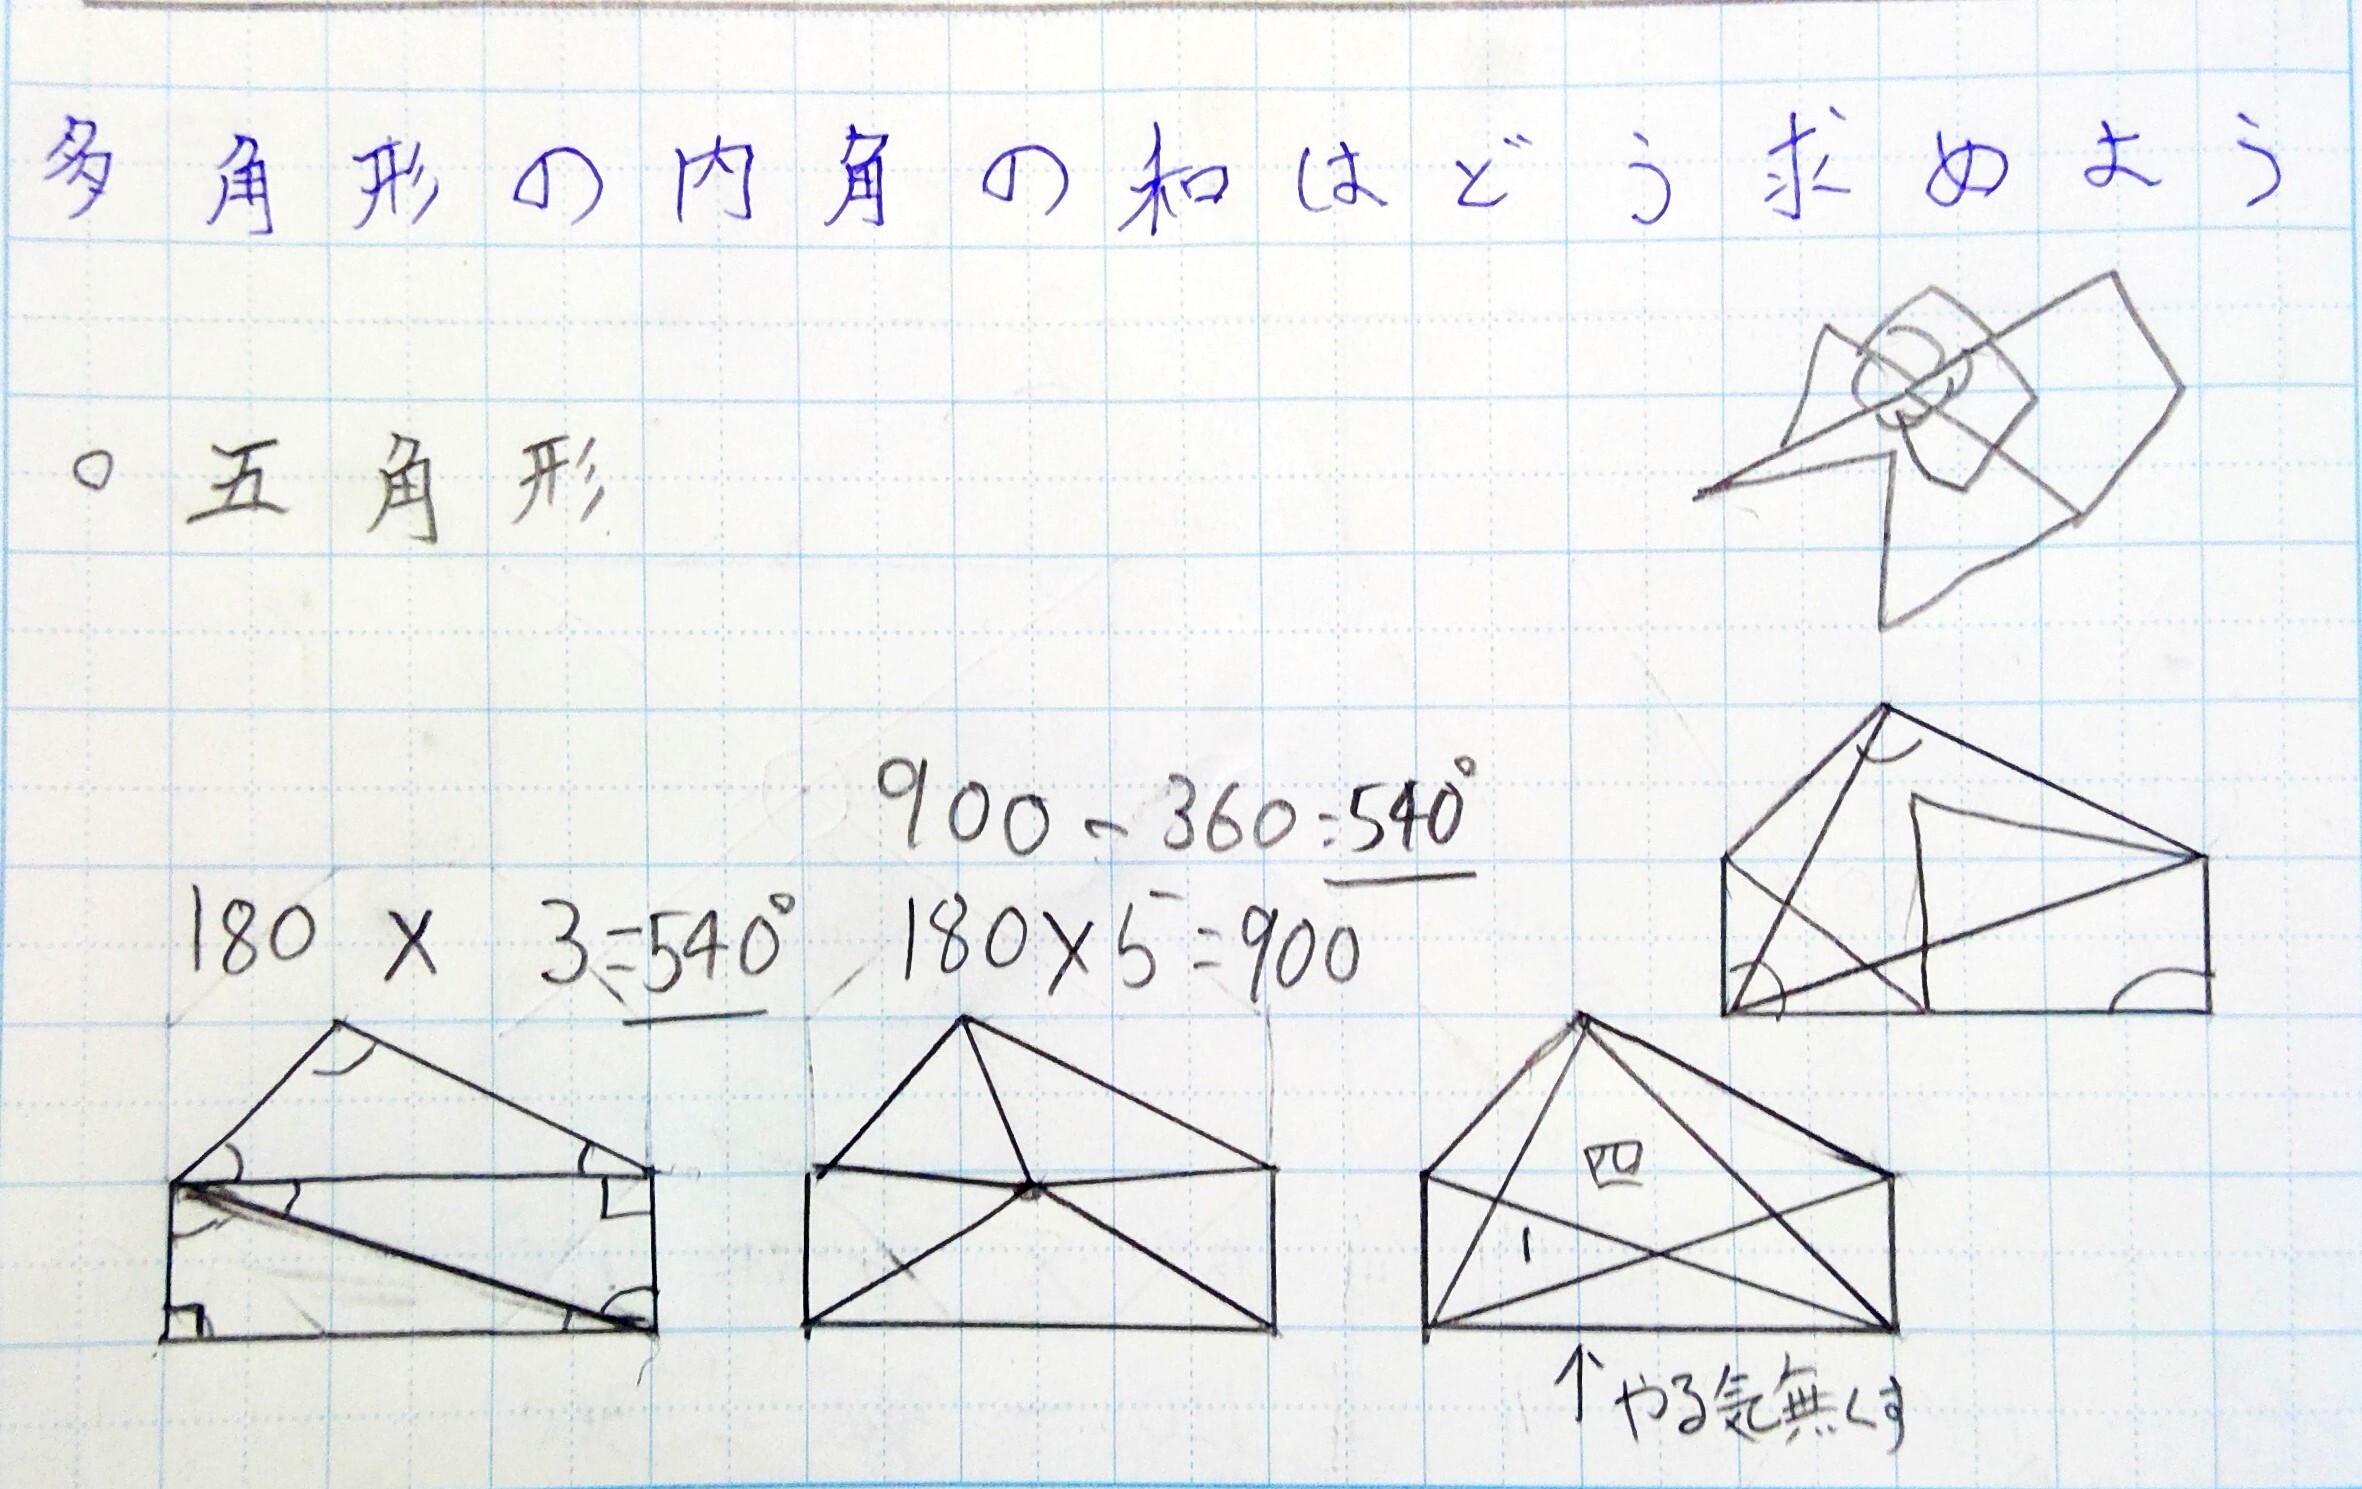 多角形の内角の和はどう求めよう
○五角形
900-360=540°
180×3=540°
180×5=900
四
1
↑やる気無くす